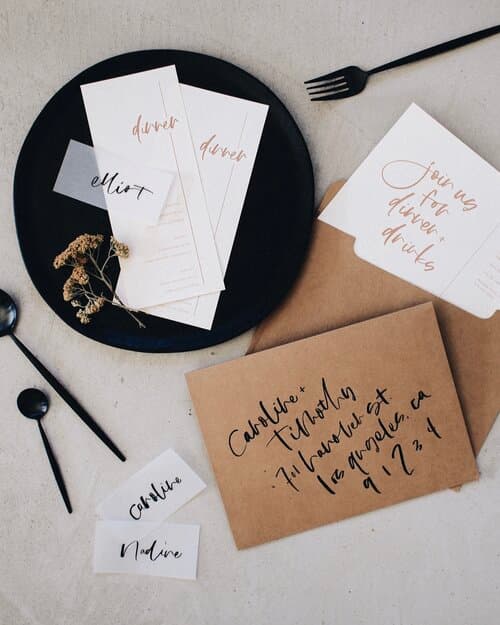 dinner
dinner
elliot
join us
for
dinner +
drinks
Caroline +
Timothy
711 hanover st
los angeles, ca
91234
Caroline
Nadine